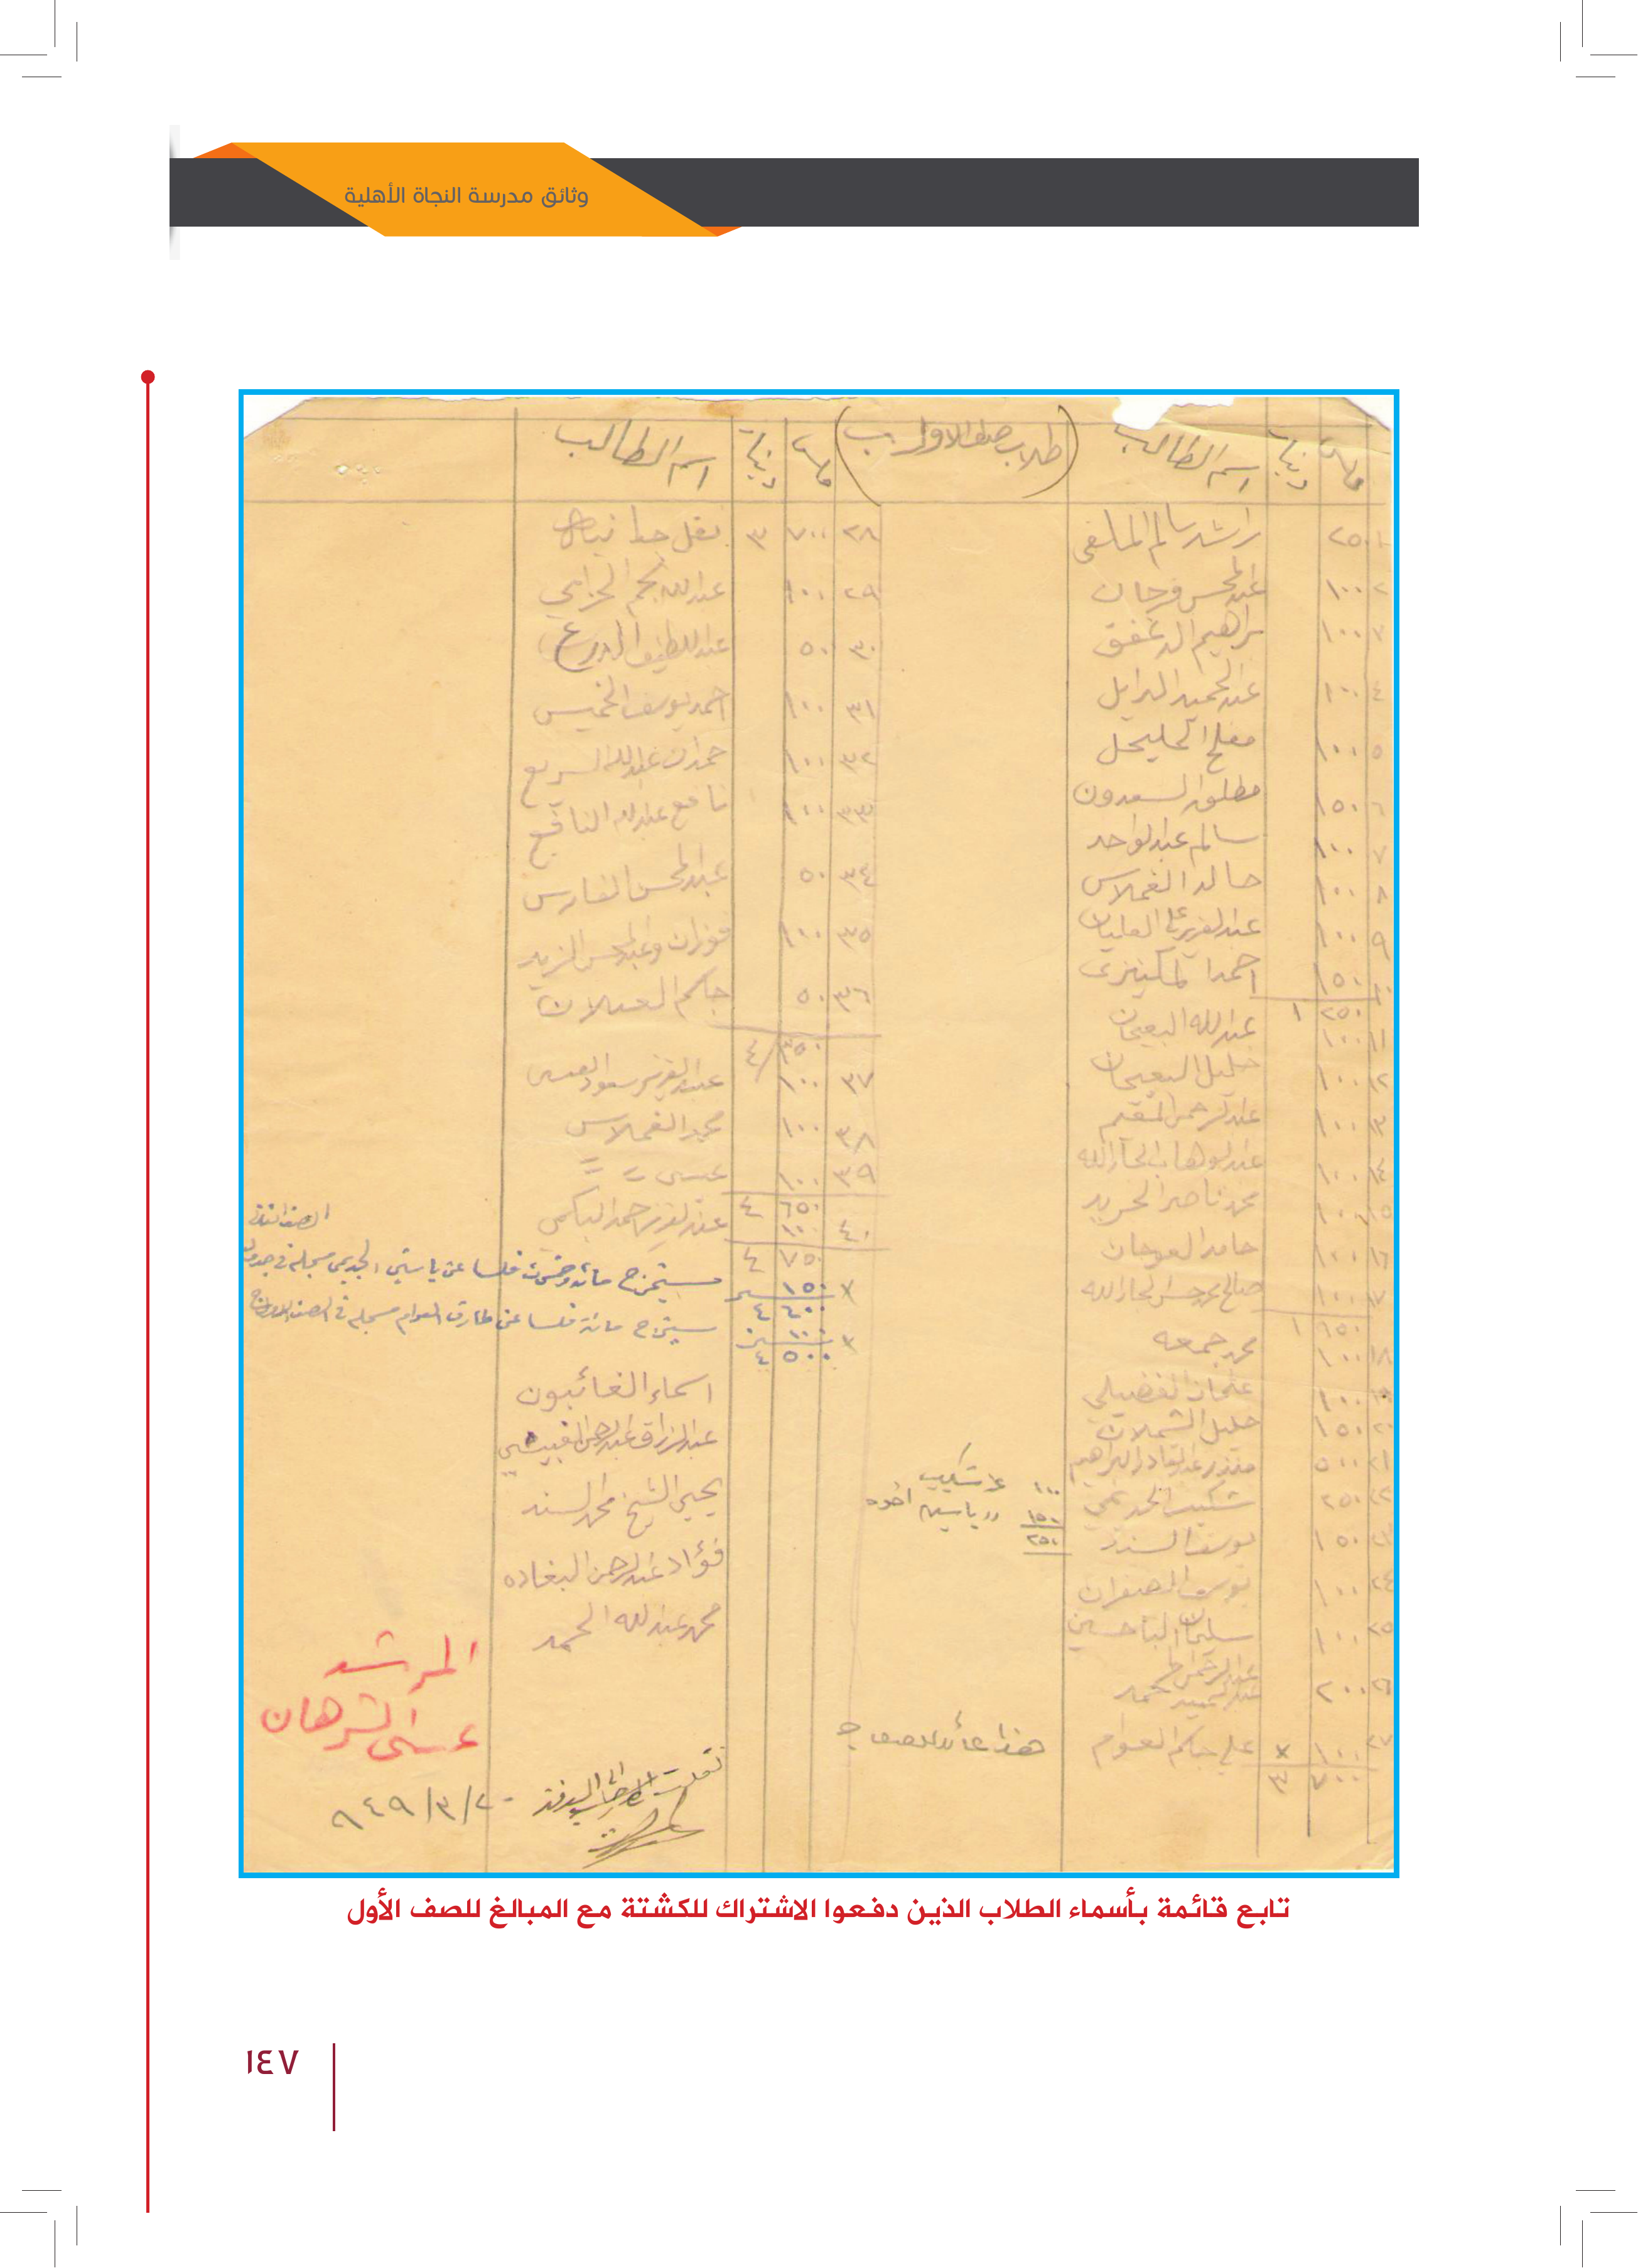 وثائق مدرسة النجاة الأهلية
فلس دينار اسم الطالب (طلاب صف الاول ب)
١ ٢٥٠ راشد سالم الملفي
٢ ١٠٠ عبدالمحسن فرحان
١٠٠ براهيم الدغفق
٤ ١٠٠ عبدالحميد البرايل
٥ ١٠٠ مفلح الحليحل
٦ ١٥٠ مطلق السعدون
٧ ١٠٠ سالم عبدالواحد
٨ ١٠٠ خالد الغملاس
٩ ١٠٠ عبدالعزيز علي العليان
١٠ ١٥٠ احمد المكينزي
٢٥٠ ١
١١ ١٠٠ عبدالله البعيجان
١٢ ١٠٠ خليل البعيجان
١٣ ١٠٠ عبدالرحمن المقيم
١٤ ١٠٠ عبدالوهاب الجارالله
١٥ ١٠٠ محمد ناصر الخريد
١٦ ١٠٠ حامد العوجان
١٧ ١٠٠ صالح محمد حسن الجارالله
٩٥٠ ١
١٨ ١٠٠ محمد جمعه
١٩ ١٠٠ عثمان الفضيلي
٢٠ ١٥٠ خليل الشملان
٢١ ٥٠٠ منذر عبدالقادر البراهيم
٢٢ ٢٥٠ شكيب الجديمي ١٠٠ عن شكيب
١٥٠ رر ياسين اخوه
٢٥٠
٢٣ ١٥٠ يوسف السند
٢٤ ١٠٠ يوسف الصفران
٢٥ ١٠٠ سليمان الباحسين
٢٦ ٢٠٠ عبدالرحمن
عبدالحميد محمد
٢٧ ١٠٠ × علي جاكم العوام هذا عائد للصف ج
٧٠٠ ٣
فلس دينار اسم الطالب
٢٨ ٧٠٠ ٣ نقل
٢٩ ١٠٠ عبدالله نجم الخزامي
٣٠ ٥٠ عبداللطيف الدرع
٣١ ١٠٠ احمد يوسف الخميس
٣٢ ١٠٠ حمدان عبدالله السريع
٣٣ ١٠٠ نافع عبدالله النافع
٣٤ ٥٠ عبدالمحسن الفارس
٣٥ ١٠٠ فوزان وعبدالمحسن الزيد
٣٦ ٥٠ جاكم العسلان
٣٥٠ ٤
٣٧ ١٠٠ عبدالعزيز سعود العيسى
٣٨ ١٠٠ محمد الغملاس
٣٩ ١٠٠ عيسى = =
٦٥٠ ٤
٤٠ ١٠٠ عبدالعزيز احمد الباكمي
٧٥٠ ٤
× ١٥٠ يستخرج مائة وخمسون فلسا عن ياسين الجديمي مسجلة في جدول الصف الثاني
٦٠٠ ٤
× ١٠٠ يستخرج مائة فلسا عن طارق العوام مسجله في الصف الاول ج
٥٠٠ ٤
اسماء الغائبون
عبدالرزاق عبدالرحمن الغبيشي
يحيى الشيخ محمد السند
فؤاد عبدالرحمن البغاده
محمد عبدالله الحمد
المرشد
عيسى الشرهان
نقلت الى
٢٠/٣/٩٤٩
تابع قائمة بأسماء الطلاب الذين دفعوا الاشتراك للكشتة مع المبالغ للصف الأول
١٤٧